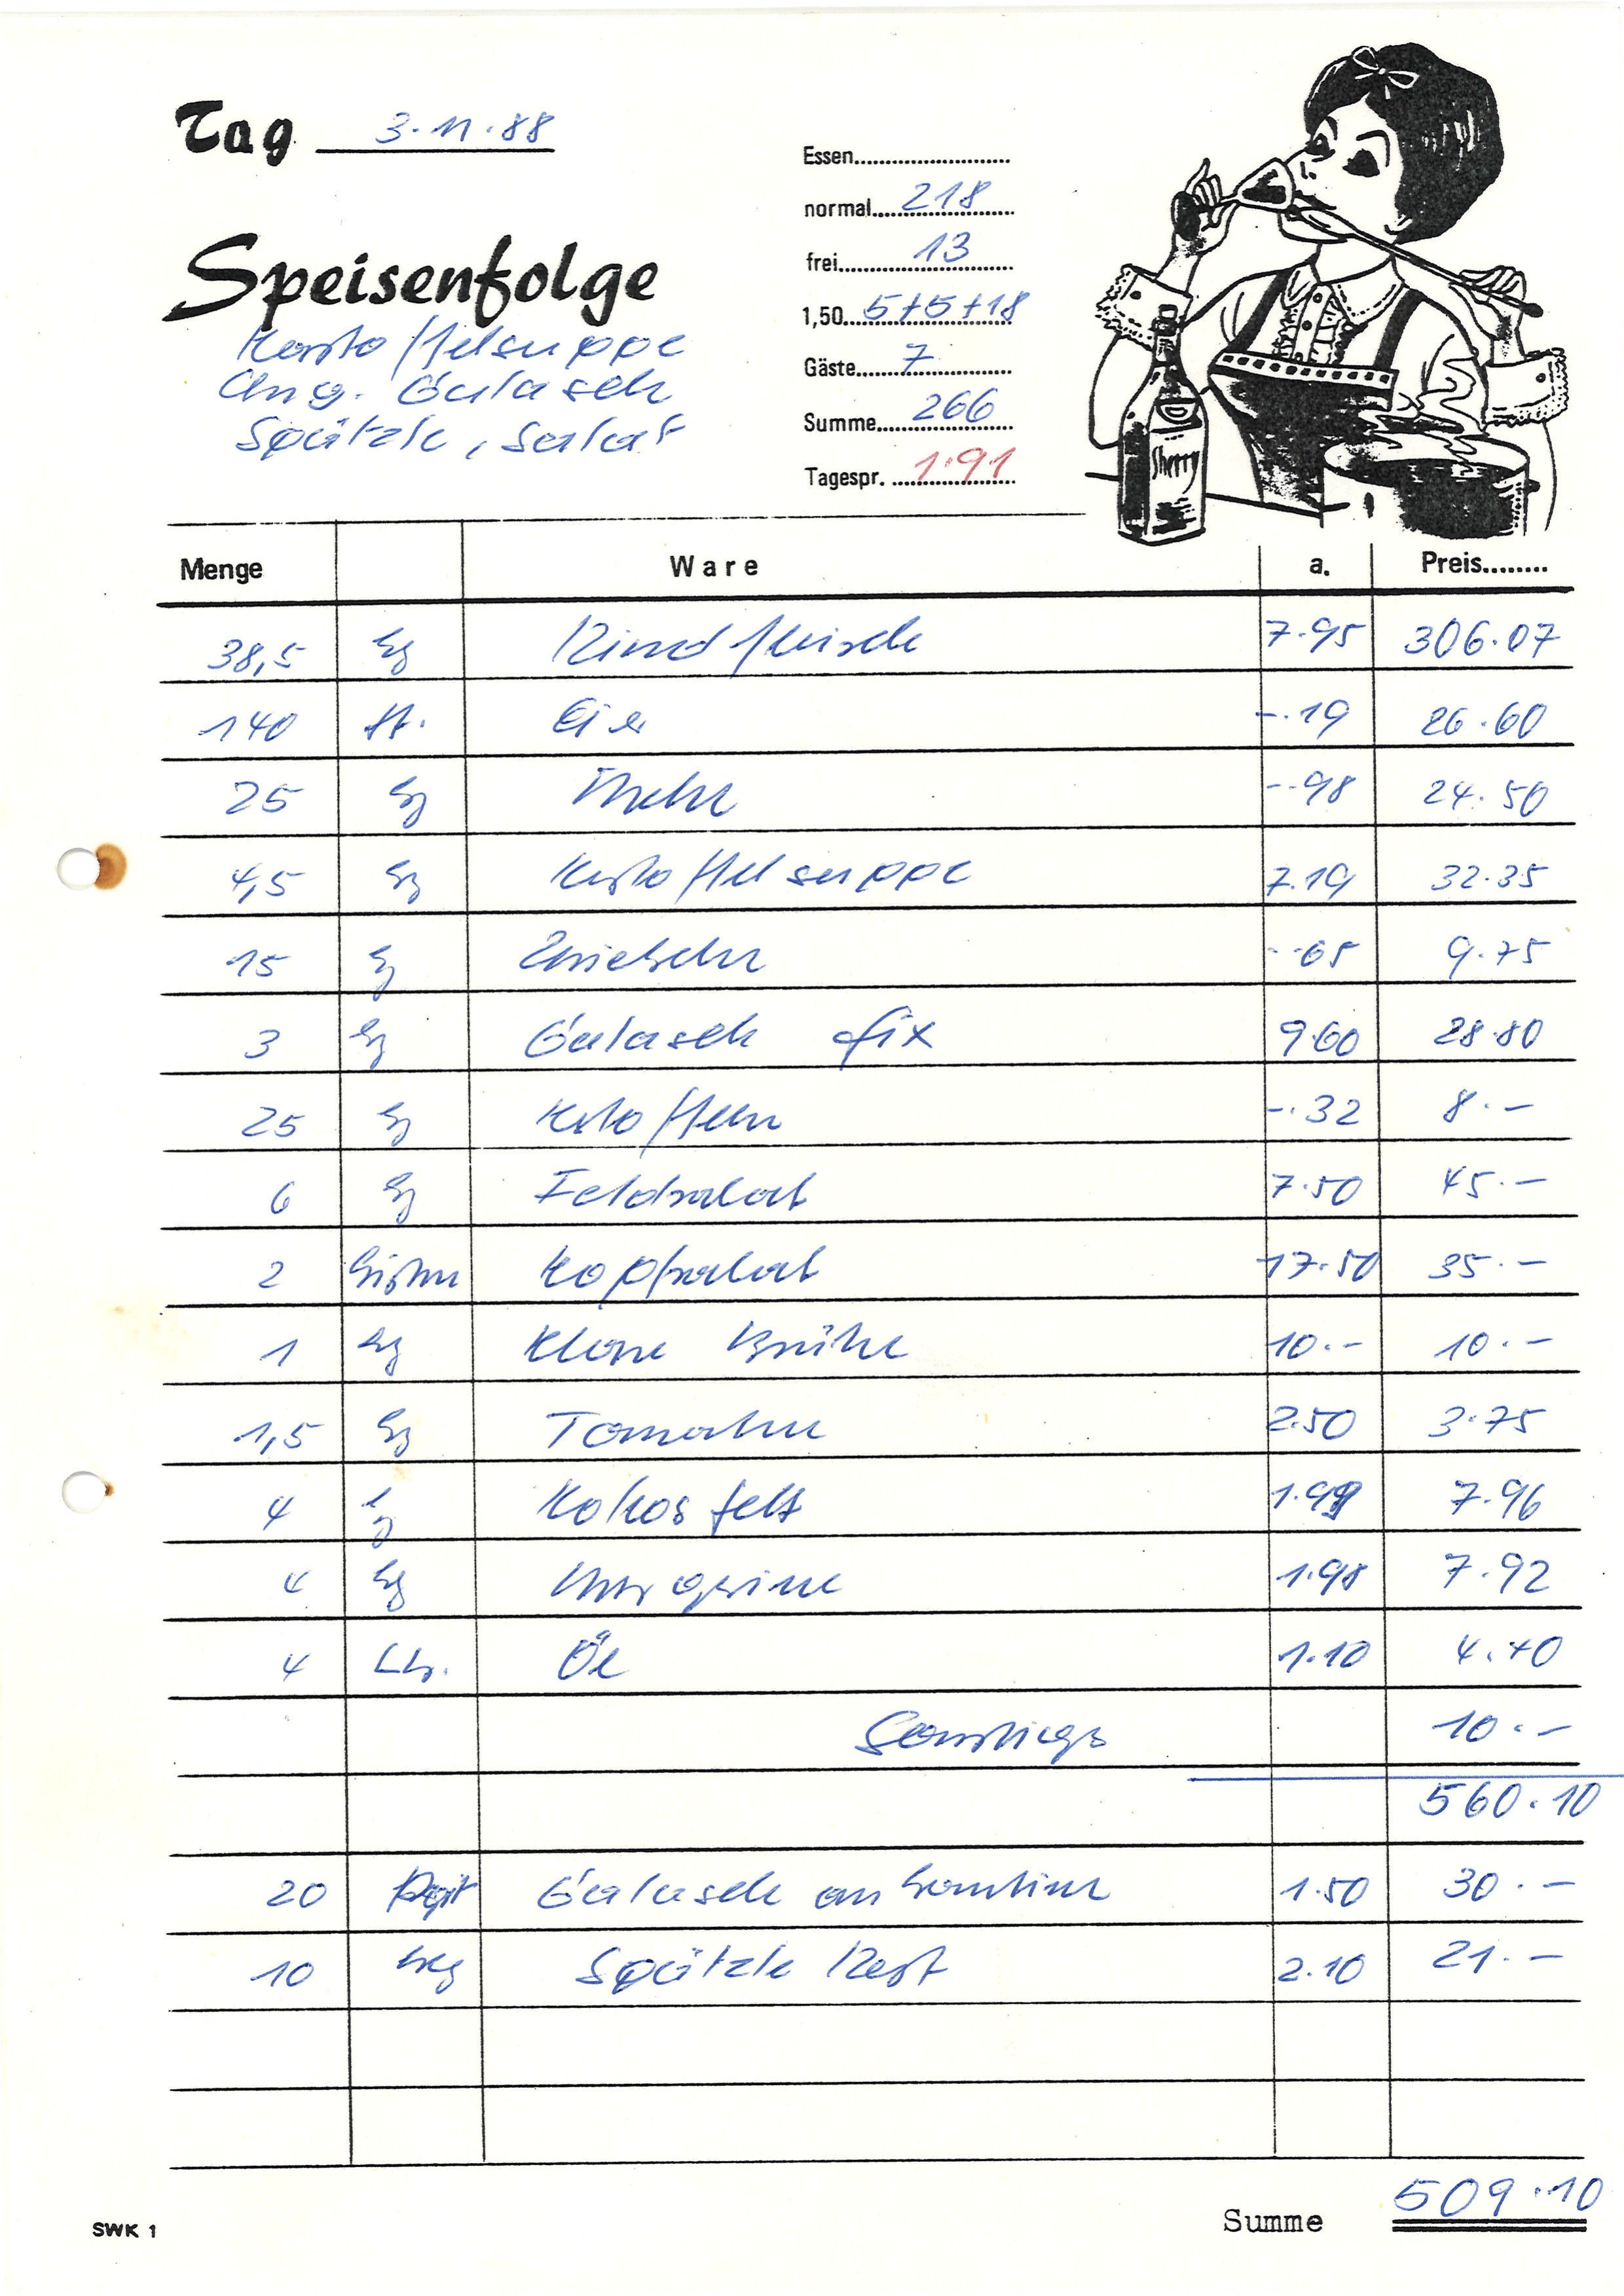 Tag 3.11.88
Essen
normal 218
frei 13
1,50 5+5+18
Gäste 7
Summe 266
Tagespr. 1.91
Speisenfolge
Kartoffelsuppe
Ung. Gulasch
Spätzle, Salat
Sherry
Menge Ware a. Preis
38,5 kg Rindfleisch 7.95 306.07
140 St. Eier -.19 26.60
25 kg Mehl -.98 24.50
4,5 kg Kartoffelsuppe 7.19 32.35
15 kg Zwiebeln -.65 9.75
3 kg Gulasch fix 9.60 28.80
25 kg Kartoffeln -.32 8.-
6 kg Feldsalat 7.50 45.-
2 Kisten Kopfsalat 17.50 35.-
1 kg Klare Brühe 10.- 10.-
1,5 kg Tomaten 2.50 3.75
4 kg Kokosfett 1.99 7.96
4 kg Margarine 1.98 7.92
4 Ltr. Öl 1.10 4.40
Sonstiges 10.-
560.10
20 Port Gulasch an Kantine 1.50 30.-
10 kg Spätzle Rest 2.10 21.-
Summe 509.10
SWK 1